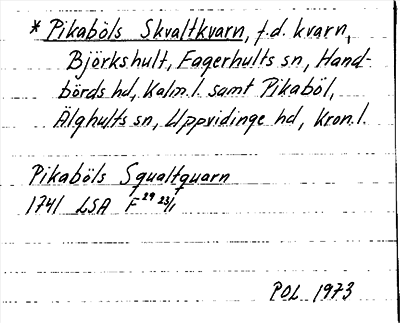 * Pikaböls Skvaltkvarn, f.d. kvarn,
Björkshult, Fagerhults sn, Hand-
börds hd, Kalm.l. samt Pikaböl,
Älghults sn, Uppvidinge hd, Kron.l.
Pikaböls Squaltquarn
1741 LSA F 29 23/1
POL 1973